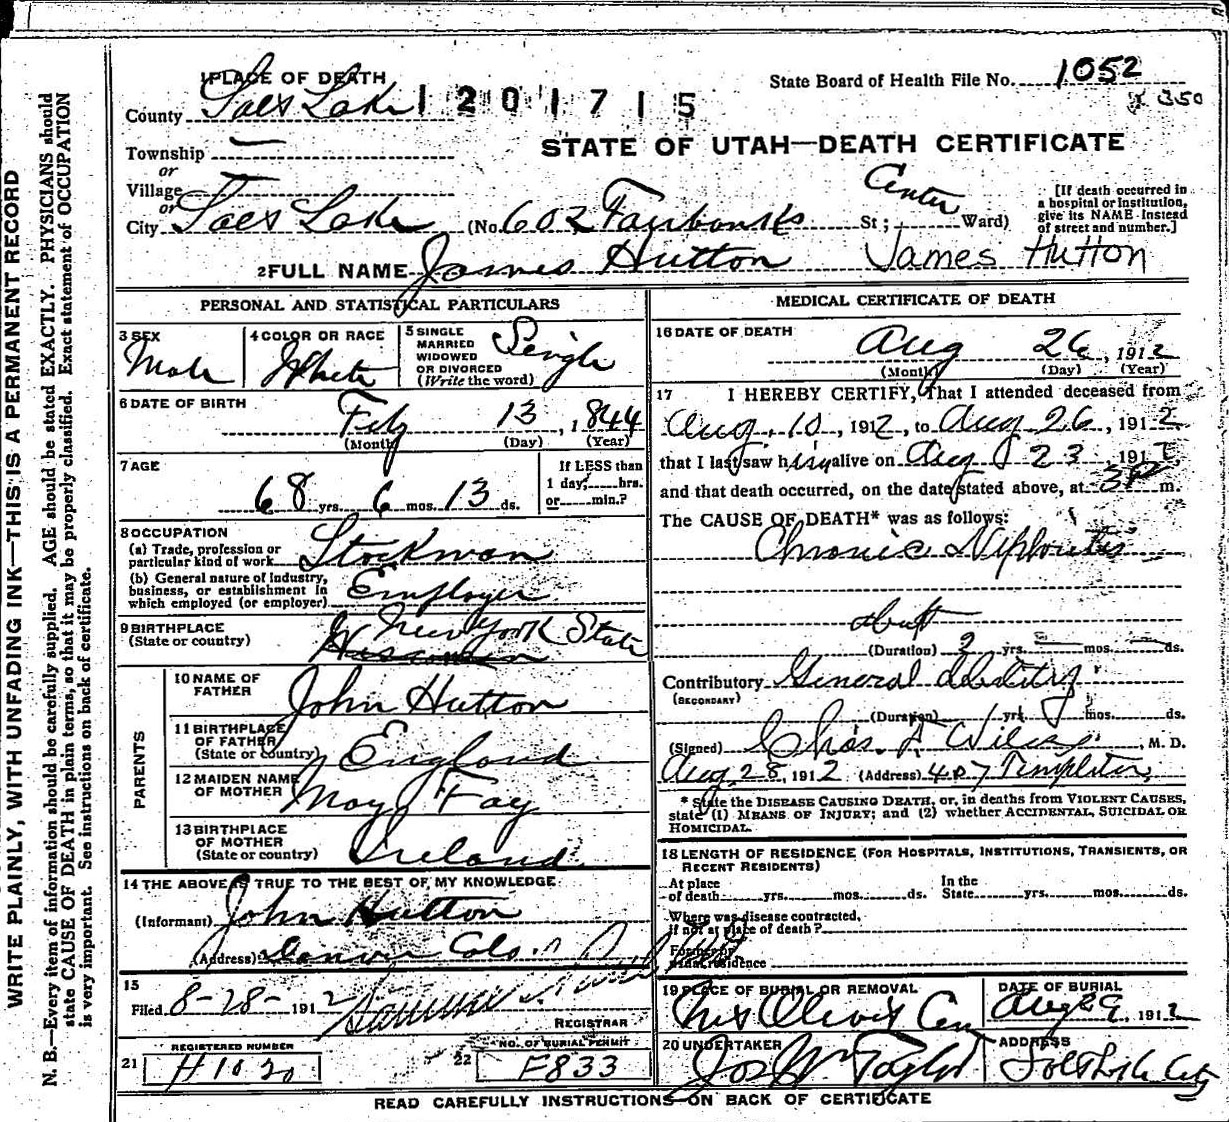 WRITE PLAINLY, WITH UNFADING INK—THIS IS A PERMANENT RECORD
N. B.—Every item of information should be carefully supplied. AGE should be stated EXACTLY. PHYSICIANS should
state CAUSE OF DEATH in plain terms, so that it may be properly classified. Exact statement of OCCUPATION
is very important. See instructions on back of certificate.
1 PLACE OF DEATH
State Board of Health File No. 1052
350
County Salt Lake
1201715
STATE OF UTAH—DEATH CERTIFICATE
Township —
or
Village
or
City Salt Lake (No. 602 Fairbanks St; Center Ward)
[If death occurred in
a hospital or institution,
give its NAME instead
of street and number.]
2 FULL NAME James Hutton James Hutton
PERSONAL AND STATISTICAL PARTICULARS
3 SEX
Male
4 COLOR OR RACE
White
5 SINGLE
MARRIED
WIDOWED
OR DIVORCED
(Write the word)
Single
6 DATE OF BIRTH
Feb 13, 1844
(Month) (Day) (Year)
7 AGE
68 yrs. 6 mos. 13 ds.
If LESS than
1 day, hrs.
or min.?
8 OCCUPATION
(a) Trade, profession or
particular kind of work Stockman
(b) General nature of industry,
business, or establishment in
which employed (or employer) Employer
9 BIRTHPLACE
(State or country)
New York State
Wisconsin
PARENTS
10 NAME OF
FATHER
John Hutton
11 BIRTHPLACE
OF FATHER
(State or country)
England
12 MAIDEN NAME
OF MOTHER
May Fay
13 BIRTHPLACE
OF MOTHER
(State or country)
Ireland
14 THE ABOVE IS TRUE TO THE BEST OF MY KNOWLEDGE
(Informant) John Hutton
(Address) Denver Colo.
15
Filed 8-28- 1912
REGISTRAR
21 REGISTERED NUMBER
H1020
22 NO. OF BURIAL PERMIT
F833
MEDICAL CERTIFICATE OF DEATH
16 DATE OF DEATH
Aug 26, 1912
(Month) (Day) (Year)
17 I HEREBY CERTIFY, That I attended deceased from
Aug. 10, 1912, to Aug 26, 1912
that I last saw him alive on Aug 23, 1912
and that death occurred, on the date stated above, at 3P m.
The CAUSE OF DEATH* was as follows:
Chronic Nephritis
about
(Duration) 2 yrs. — mos. — ds.
Contributory General debility
(SECONDARY)
(Duration) yrs. mos. ds.
(Signed) Chas. , M. D.
Aug 28, 1912 (Address) 407 Templeton
* State the DISEASE CAUSING DEATH, or, in deaths from VIOLENT CAUSES,
state (1) MEANS OF INJURY; and (2) whether ACCIDENTAL, SUICIDAL OR
HOMICIDAL.
18 LENGTH OF RESIDENCE (FOR HOSPITALS, INSTITUTIONS, TRANSIENTS, OR
RECENT RESIDENTS)
At place
of death yrs. mos. ds. In the
State yrs. mos. ds.
Where was disease contracted,
if not at place of death?
Former or
usual residence
19 PLACE OF BURIAL OR REMOVAL
Mt Olivet Cem
DATE OF BURIAL
Aug 29, 1912
20 UNDERTAKER
Jos Wm Taylor
ADDRESS
Salt Lake City
READ CAREFULLY INSTRUCTIONS ON BACK OF CERTIFICATE